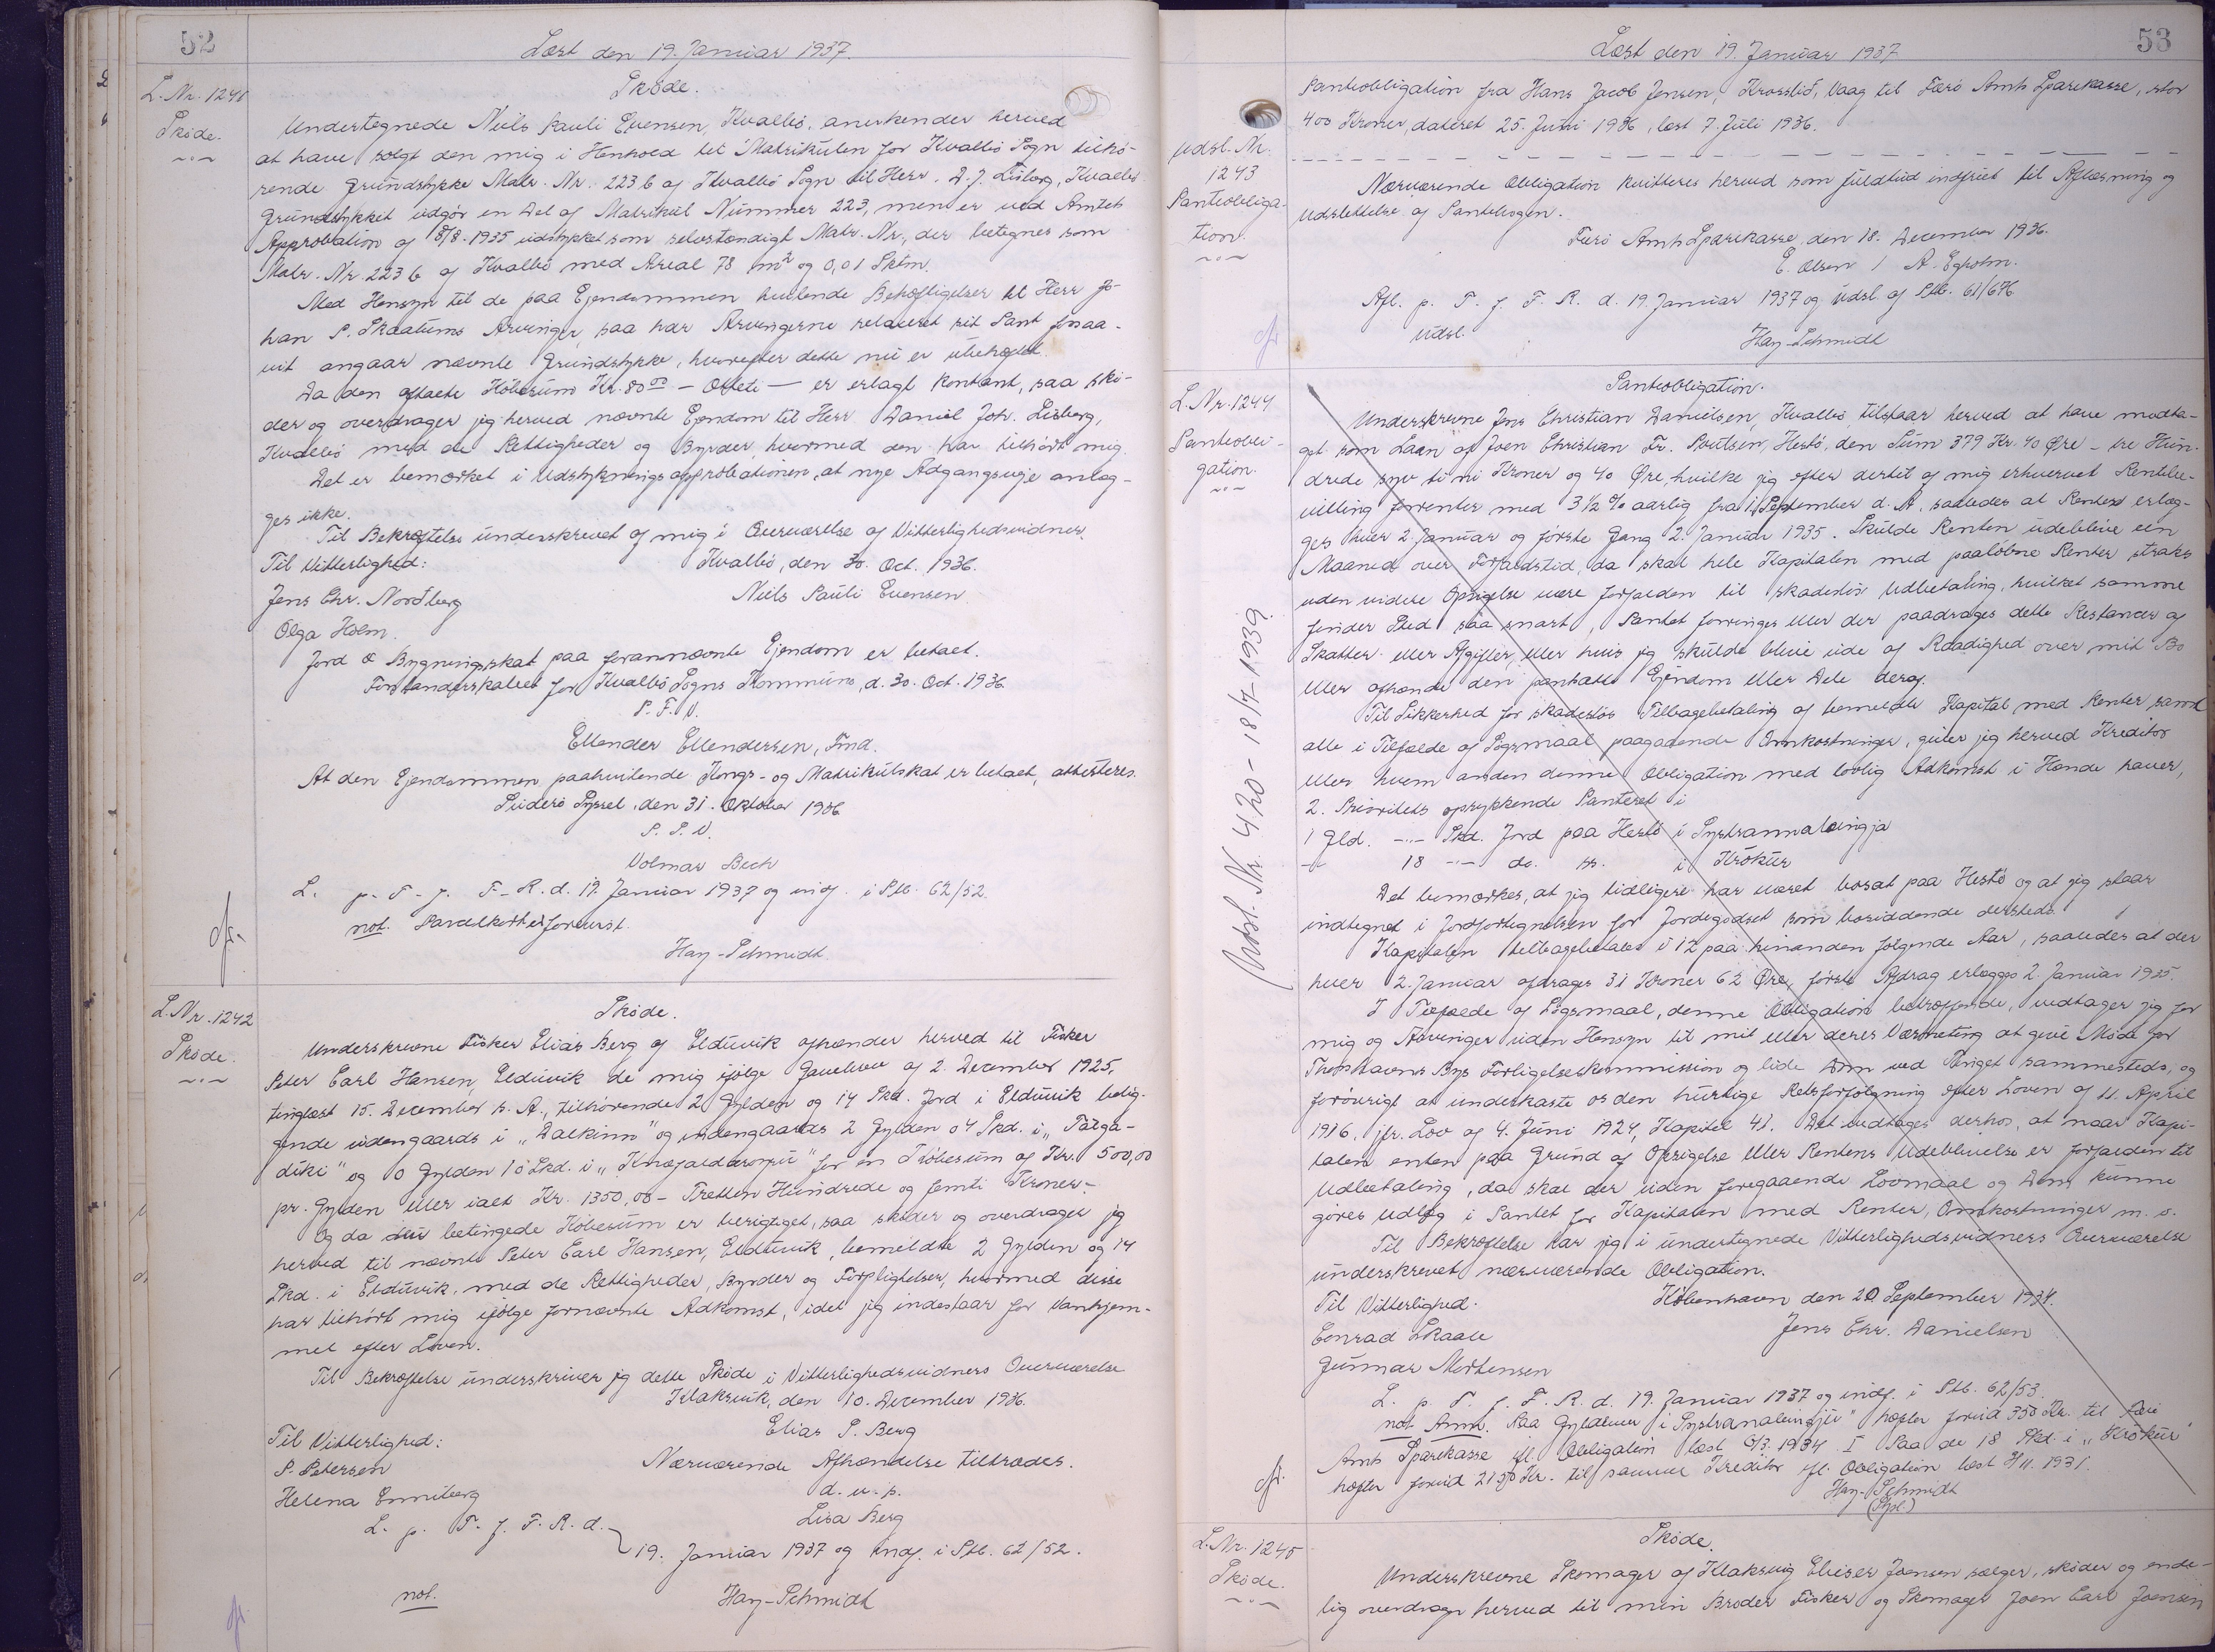 52
Læst den 19. Januar 1937.
L. Nr. 1241
Skøde.
Skøde.
Undertegnede Niels Pauli Evensen, Kvalbø, anerkender herved
at have solgt den mig i Henhold til Matrikulen for Kvalbø Sogn tilhø-
rende Grundstykke Matr. Nr. 223 b af Kvalbø Sogn til Herr. D. J. Lisberg, Kvalbø
Grundstykket udgør en Del af Matrikul Nummer 223, men er ved Amtets
Approbation af 8/8. 1935 udstykket som selvstændigt Matr. Nr., der betegnes som
Matr. Nr. 223 b af Kvalbø med Areal 78 m² og 0,01 Sktm.
Med Hensyn til de paa Ejendommen hvilende Behæftigelser til Herr Jo-
han P. Skaalums Arvinger, saa har Arvingerne relaxeret sit Pant forsaa-
vit angaar nævnte Grundstykke, hvorefter dette nu er ubehæftet.
Da den aftalte Købesum Kr. 80 00 - Otteti - er erlagt kontant, saa skø-
der og overdrager jeg herved nævnte Ejendom til Herr Daniel Joh. Lisberg,
Kvalbø med de Rettigheder og Byrder, hvormed den har tilhørt mig.
Det er bemærket i Udstykningsapprobationen, at nye Adgangsveje anlæg-
ges ikke.
Til Bekræftelse underskrevet af mig i Overværelse af Vitterlighedsvidner.
Til Vitterlighed: Kvalbø, den 30. Oct. 1936.
Jens Chr. Nordberg Niels Pauli Evensen
Olga Holm.
Jord & Bygningsskat paa forannævnte Ejendom er betalt.
Forstanderskabet for Kvalbø Sogns Kommune, d. 30. Oct. 1936
P. F. V.
Ellender Ellendersen, Fmd.
At den Ejendommen paahvilende Kongs- og Matrikulskat er betalt, attesteres.
Suderø Syssel, den 31. Oktober 1936
P. S. V.
Volmar Bech
L. p. T. f. F. R. d. 19. Januar 1937 og indf. i Ptb. 62/52.
not. Parcelkort er forevist.
Hay-Schmidt.
L. Nr. 1242
Skøde.
Skøde.
Underskrevne Fisker Elias Berg af Elduvik afhænder herved til Fisker
Peter Carl Hansen, Elduvik de mig ifølge Gavebrev af 2. December 1925,
tinglæst 15. December s. A., tilhørende 2 Gylden og 14 Skd. Jord i Elduvik belig-
gende udengaards i „Dalkinn" og indengaards 2 Gylden 04 Skd. i „Tátga-
diki" og 0 Gylden 10 Skd. i for en Købesum af Kr. 500,00
pr. Gylden eller ialt Kr. 1350,00 - Tretten Hundrede og femti Kroner -.
Og da den betingede Købesum er berigtiget, saa skøder og overdrager jeg
herved til nævnte Peter Carl Hansen, Elduvik, bemeldte 2 Gylden og 14
Skd. i Elduvik, med de Rettigheder, Byrder og Forpligtelser, hvormed disse
har tilhørt mig ifølge fornævnte Adkomst, idet jeg indestaar for Vanhjem-
mel efter Loven.
Til Bekræftelse underskriver jeg dette Skøde i Vitterlighedsvidners Overværelse
Klaksvik, den 10. December 1936.
Elias P. Berg
Til Vitterlighed:
P. Petersen Nærværende Afhændelse tiltrædes.
Helena Enniberg d. u. s.
Lisa Berg
L. p. T. f. F. R. d. 19. Januar 1937 og indf. i Ptb. 62/52.
not. Hay-Schmidt
53
Læst den 19. Januar 1937
Panteobligation fra Hans Jacob Jensen, Krosslid, Vaag til Færø Amts Sparekasse, stor
400 Kroner, dateret 25. Juni 1936, læst 7. Juli 1936.
Udsl. Nr.
1243
Panteobliga-
tion.
Nærværende Obligation kvitteres herved som fuldtud indfriet til Aflæsning og
Udslettelse af Pantebogen.
Færø Amts Sparekasse, den 18. December 1936.
E. Olsen / A. Egholm.
Afl. p. T. f. F. R. d. 19. Januar 1937 og udsl. af Ptb. 61/676
udsl. Hay-Schmidt
L. Nr. 1244
Panteobli-
gation.
Udsl. Nr. 420 - 18/7-1939
Panteobligation.
Underskrevne Jens Christian Danielsen, Kvalbø, tilstaar herved at have modta-
get som Laan af Joen Christian Fr. Poulsen, Hestø, den Sum 379 Kr. 40 Øre - tre Hun-
drede syv ti ni Kroner og 40 Øre, hvilke jeg efter dertil af mig erhvervet Rentebe-
villing forrenter med 3½ % aarlig fra 1. September d. A., saaledes at Renten erlæg-
ges hver 2. Januar og første Gang 2. Januar 1935. Skulde Renten udeblive een
Maaned over Forfaldstid, da skal hele Kapitalen med paaløbne Renter straks
uden videre Opsigelse være forfalden til skadesløs Udbetaling, hvilket samme
finder Sted saa snart, Pantet forringes eller der paadrages dette Restancer af
Skatter eller Afgifter, eller hvis jeg skulde blive ude af Raadighed over mit Bo
eller afhænde den pantsatte Ejendom eller Dele deraf.
Til Sikkerhed for skadesløs Tilbagebetaling af bemeldte Kapital med Renter samt
alle i Tilfælde af Søgsmaal paagaaende Omkostninger, giver jeg herved Kreditor
eller hvem anden denne Obligation med lovlig Adkomst i Hænde haver,
2. Prioritets oprykkende Panteret i
1 Gld. -..- Skd. Jord paa Hestø i Systrannaleingja
-..- 18 -..- do. ss. i Krókur
Det bemærkes, at jeg tidligere har været bosat paa Hestø og at jeg staar
indtegnet i Jordfortegnelsen for Jordegodset som bosiddende dersteds.
Kapitalen tilbagebetales i 12 paa hinanden følgende Aar, saaledes at der
hver 2. Januar afdrages 31 Kroner 62 Øre, første Afdrag erlægges 2. Januar 1935.
I Tilfælde af Søgsmaal, denne Obligation betræffende, vedtager jeg for
mig og Arvinger uden Hensyn til mit eller deres Værneting at give Møde for
Thorshavns Bys Forligelseskommission og lide Dom ved Tinget sammesteds, og
forøvrigt at underkaste os den hurtige Retsforfølgning efter Loven af 11. April
1916, jfr. Lov af 4. Juni 1924, Kapitel 41. Det vedtages derhos, at naar Kapi-
talen enten paa Grund af Opsigelse eller Rentens Udeblivelse er forfalden til
Udbetaling, da skal der uden foregaaende Lovmaal og Dom kunne
gøres Udlæg i Pantet for Kapitalen med Renter, Omkostninger m. v.
Til Bekræftelse har jeg i undertegnede Vitterlighedsvidners Overværelse
underskrevet nærværende Obligation.
Til Vitterlighed. København den 20 September 1934.
Conrad Skaale Jens Chr. Danielsen
Gunnar Mortensen
L. p. T. f. F. R. d. 19. Januar 1937 og indf. i Ptb. 62/53.
not. Anm. Paa Gyldenen i hæfter forud 350 Kr. til Færø
Amts Sparekasse ifl. Obligation læst 1934. I Paa de 18 Skd. i „Krókur"
hæfter forud Kr. til samme Kreditor ifl. Obligation læst 1931.
Hay-Schmidt
L. Nr. 1245
Skøde.
Skøde.
Underskrevne Skomager af Klaksvig Elieser Joensen sælger, skøder og ende-
lig overdrager herved til min Broder Fisker og Skomager Joen Carl Joensen